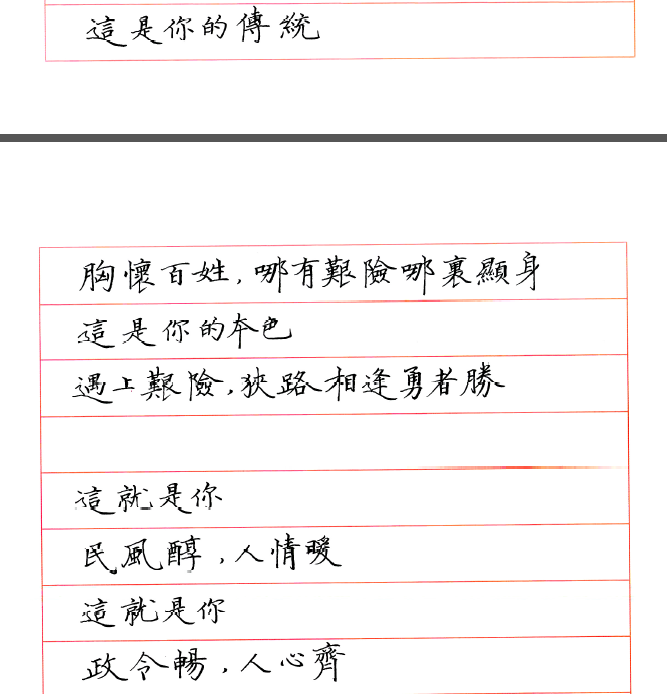 這是你的傳統
胸懷百姓，哪有艱險哪裏顯身
這是你的本色
遇上艱險，狹路相逢勇者勝
這就是你
民風醇，人情暖
這就是你
政令暢，人心齊